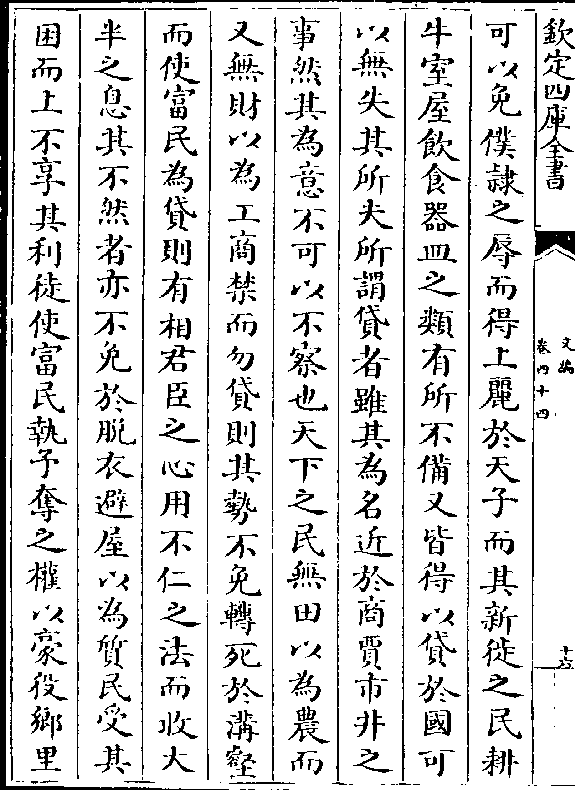 欽定四庫全書
文編
卷四十四
十六
可以免僕𨽻之辱而得上麗於天子而其新徙之民耕
牛室屋飲食器皿之類有所不備又皆得以貸於國可
以無失其所夫所謂貸者雖其為名近於商賈市井之
事然其為意不可以不察也天下之民無田以為農而
又無財以為工商禁而勿貸則其勢不免轉死於溝壑
而使富民為貸則有相君臣之心用不仁之法而收大
半之息其不然者亦不免於脱衣避屋以為質民受其
困而上不享其利徒使富民執予奪之權以豪役鄉里